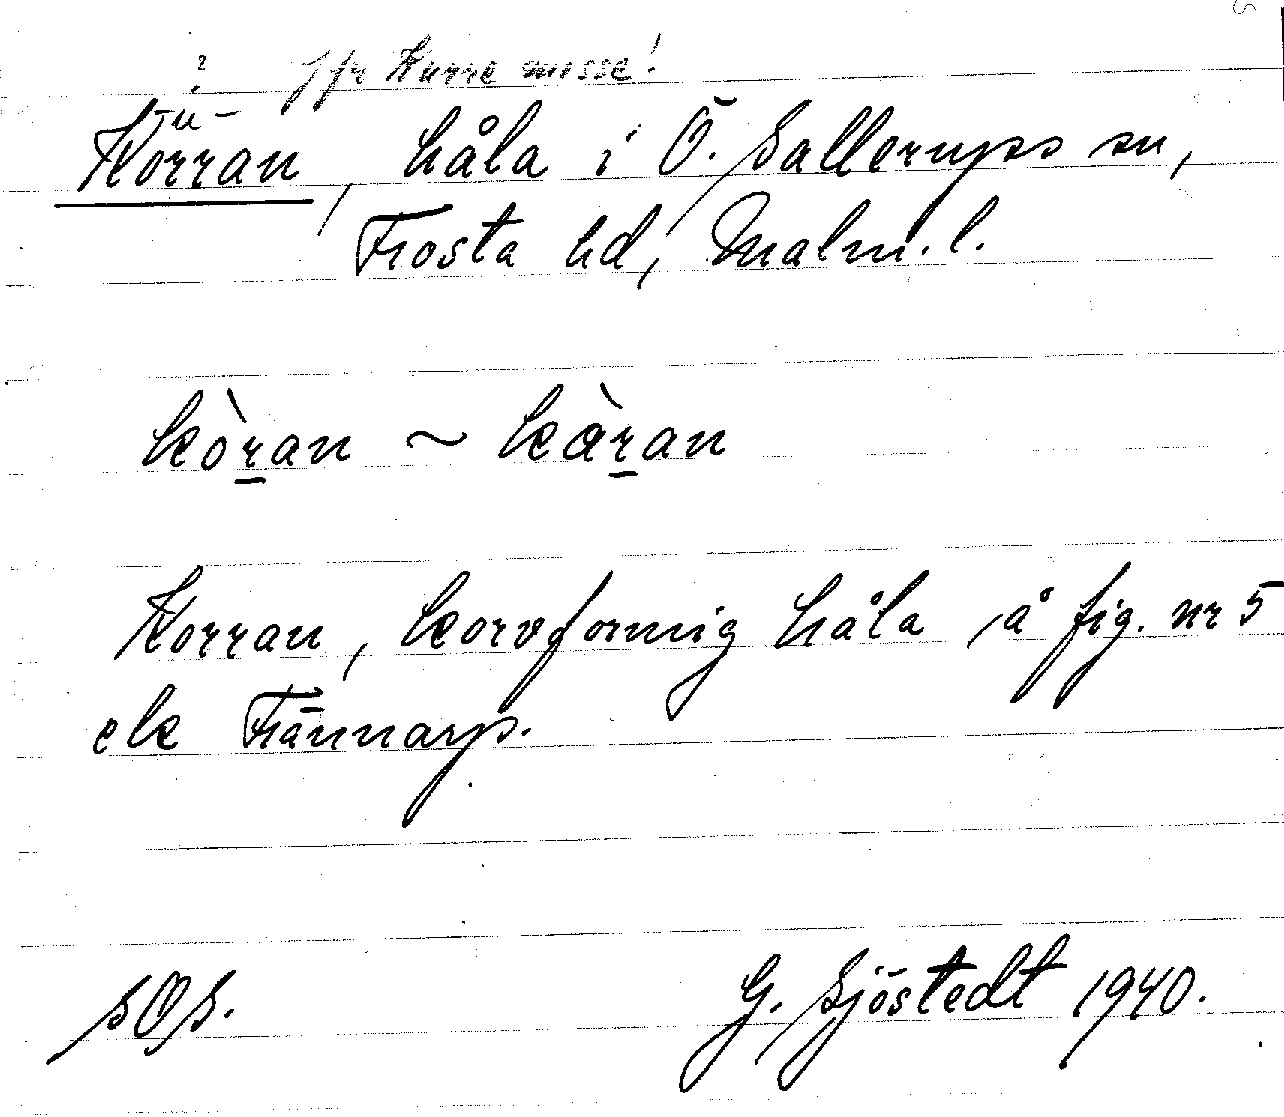 ? Jfr Kurre mosse!
-u-
Korran, håla i Ö. Sallerups sn,
Frosta hd, Malm. l.
kòran ~ kàran
Korran, korvformig håla å fig. nr 5
ek Frännarp.
SOS. G. Sjöstedt 1940.